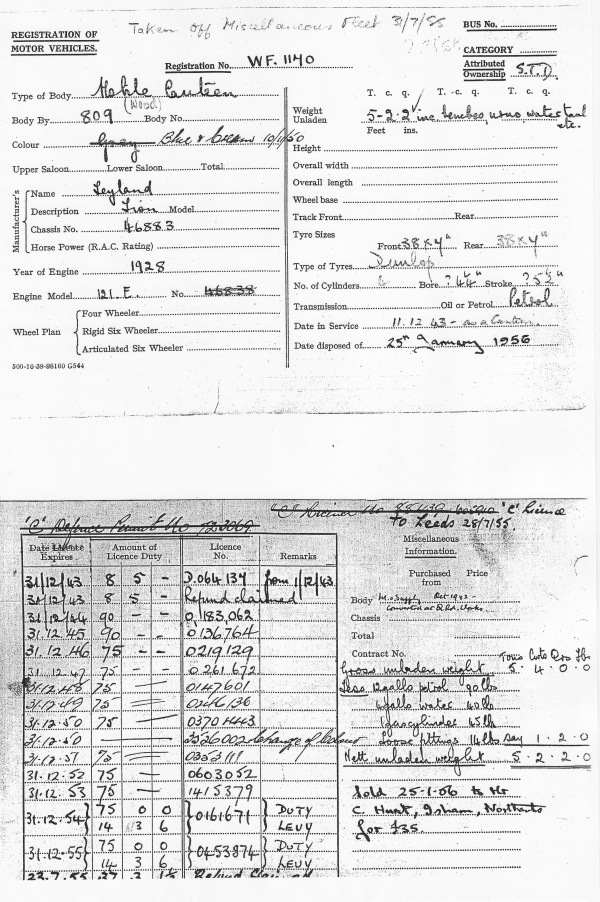 Taken off Miscellaneous Fleet 31/7/55
REGISTRATION OF
MOTOR VEHICLES.
BUS No.
CATEGORY
Registration No. WF. 1140
Attributed
Ownership S.T.D.
Type of Body Mobile Canteen
(Wood)
Body By 809 Body No.
Colour Grey Blue & Cream 10/1/50
Upper Saloon Lower Saloon Total
Manufacturer's
Name Leyland
Description Lion Model
Chassis No. 46883
Horse Power (R.A.C. Rating)
Year of Engine 1928
Engine Model 121. E. No. 46838
Wheel Plan
Four Wheeler
Rigid Six Wheeler
Articulated Six Wheeler
500-10-39-98160 G544
T. c. q. T. c. q. T. c. q.
Weight
Unladen 5-2-2 inc benches, urns water tank
etc.
Feet ins.
Height
Overall width
Overall length
Wheel base
Track Front Rear
Tyre Sizes
Front 38 x 4" Rear 38 x 4"
Type of Tyres Dunlop
No. of Cylinders Bore ?4¼" Stroke ?5½"
Transmission Oil or Petrol Petrol
Date in Service 11.12 43 - as a Canteen.
Date disposed of 25th January 1956
'C' Defence Permit No 723069.
"C" Licence No 'C' Licence
To Leeds 28/7/55.
Date Licence
Expires
Amount of
Licence Duty
Licence
No.
Remarks
31/12/43 8 5 - D.064 137 from 1/12/43
31/12/43 8 5 - Refund claimed
31/12/44 90 - - 0,183,062
31.12.45 90 - - 0136764
31.12.46 75 - - 0219129
31.12.47 75 - - 0261672
31.12.48 75 0147601
31.12.49 75 0246136
31.12.50 75 0370443
31.12.50 2326002 change of colour
31.12.51 75 0353111
31.12.52 75 - 0603052
31.12.53 75 - 1415379
31.12.54 75 0 0 0161671 DUTY
14 3 6 LEVY
31.12.55 75 0 0 0453874 DUTY
14 3 6 LEVY
Refund Claimed
Miscellaneous
Information.
Purchased
from
Price
Body M. o Supply Oct 1942
Converted at Q. Rd. Works
Chassis
Total
Contract No.
Tons Cwts Qrs lbs
Gross unladen weight 5. 4. 0. 0
Less 12 galls petrol 90 lbs
4 galls water 40 lbs
1 gas cylinder 45 lb
loose fittings 14 lbs say 1. 2. 0
Nett unladen weight 5. 2. 2. 0
Sold 25-1-56 to Mr
C. Hunt, Isham, Northants
for £35.